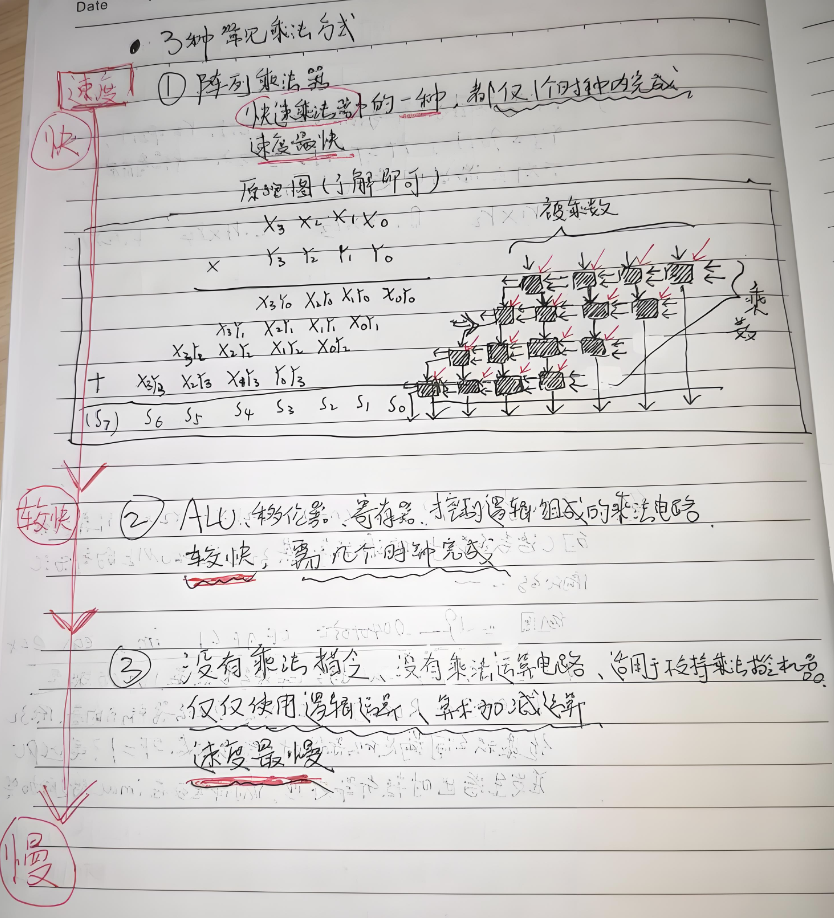 Date
• 3种常见乘法方式
速度
① 阵列乘法器
快
快速乘法器中的一种,都仅1个时钟内完成
速度最快
原理图(了解即可)
X3 X2 X1 X0
被乘数
× Y3 Y2 Y1 Y0
X3Y0 X2Y0 X1Y0 X0Y0
乘数
X3Y1 X2Y1 X1Y1 X0Y1
X3Y2 X2Y2 X1Y2 X0Y2
+ X3Y3 X2Y3 X1Y3 Y0Y3
(S7) S6 S5 S4 S3 S2 S1 S0
较快
② ALU、移位器、寄存器、控制逻辑组成的乘法电路.
较快,需几个时钟完成
③ 没有乘法指令、没有乘法运算电路、适用于不支持乘法指令机器。
仅仅使用逻辑运算、算术加减运算
速度最慢
慢